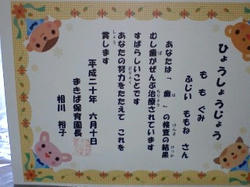 ひょうしょうじょう
ももぐみ
ふじい ももね さん
あなたは「歯」の検査の結果
むし歯がぜんぶ治療されています
すばらしいことです
あなたの努力をたたえて これを
賞します
平成二十年 六月十日
まきば保育園長
相川 裕子